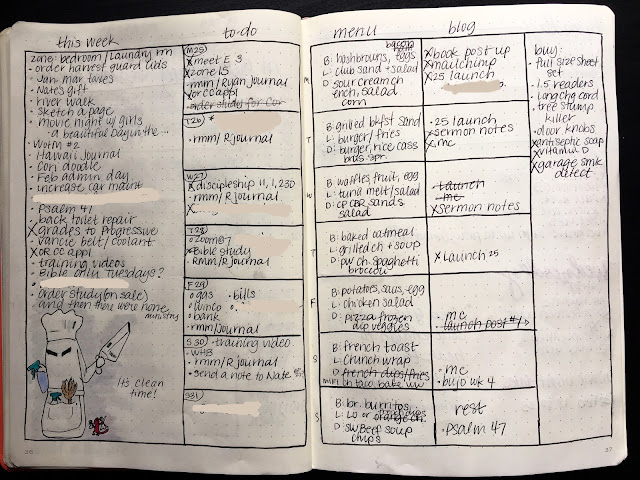 this week
zone: bedroom/Laundry rm
· order harvest guard lids
· Jan Mar taxes
· Nate's gift
· river walk
· sketch a page
· movie night w/ girls
a beautiful Day in the...
WOTM #2
· Hawaii Journal
· Con doodle
· Feb admin day
· increase car maint
· Psalm 41
· back toilet repair
X grades to Progressive
· Vancie belt/coolant
X OR CC appl
· training videos
· Bible only Tuesdays?
· order study (on sale)
and then there were none
ministry
It's clean
time!
36
to-do
M25
X meet E 3
X zone 15
· rmm/Ryan journal
X or CC appl
· order study for Cor
T26
· rmm/R journal
W27
X discipleship 11, 1, 230
· rmm/R journal
X
T28
o zoom @ 7
X Bible study
RMM/R journal
F29
o gas · bills
· winco
· bank
· rmm/Journal
S30 · training video
· WHB
· rmm/R journal
· send a note to Nate
S31
menu
M
bacon
B: hashbrowns, eggs
L: club sand + salad
D: sour cream ch
ench, salad
corn
T
B: grilled bkfst sand
L: burger/fries
D: burger, rice cass
brus. spr.
W
B: waffles, fruit, egg
L: tuna melt/salad
D: CP CBR sands
salad
T
B: baked oatmeal
L: grilled ch + soup
D: pw ch. spaghetti
broccoli
F
B: potatoes, saus, egg
L: chicken salad
D: pizza frozen
dip veggies
S
B: french toast
L: crunch wrap
D: french dips/fries
ch taco bake ww
S
B: br. burritos
L: LO or orange ch.
D: SW Beef soup
chips
blog
X book post up
X mailchimp
X 25 launch
· 25 launch
X sermon notes
X mc
· launch
· mc
X sermon notes
X Launch 25
· mc
· launch post #1
· mc
· bujo wk 4
rest
· Psalm 47
buy:
· full size sheet
set
· 1.5 readers
· long chg cord
· tree stump
killer
· door knobs
X antiseptic soap
X vitamin D
X garage smk
detect
37